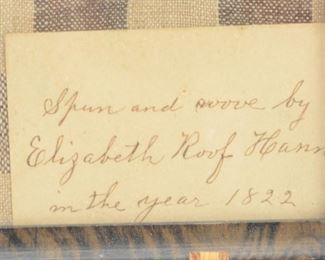 Spun and wove by
Elizabeth Roof Hann
in the year 1822